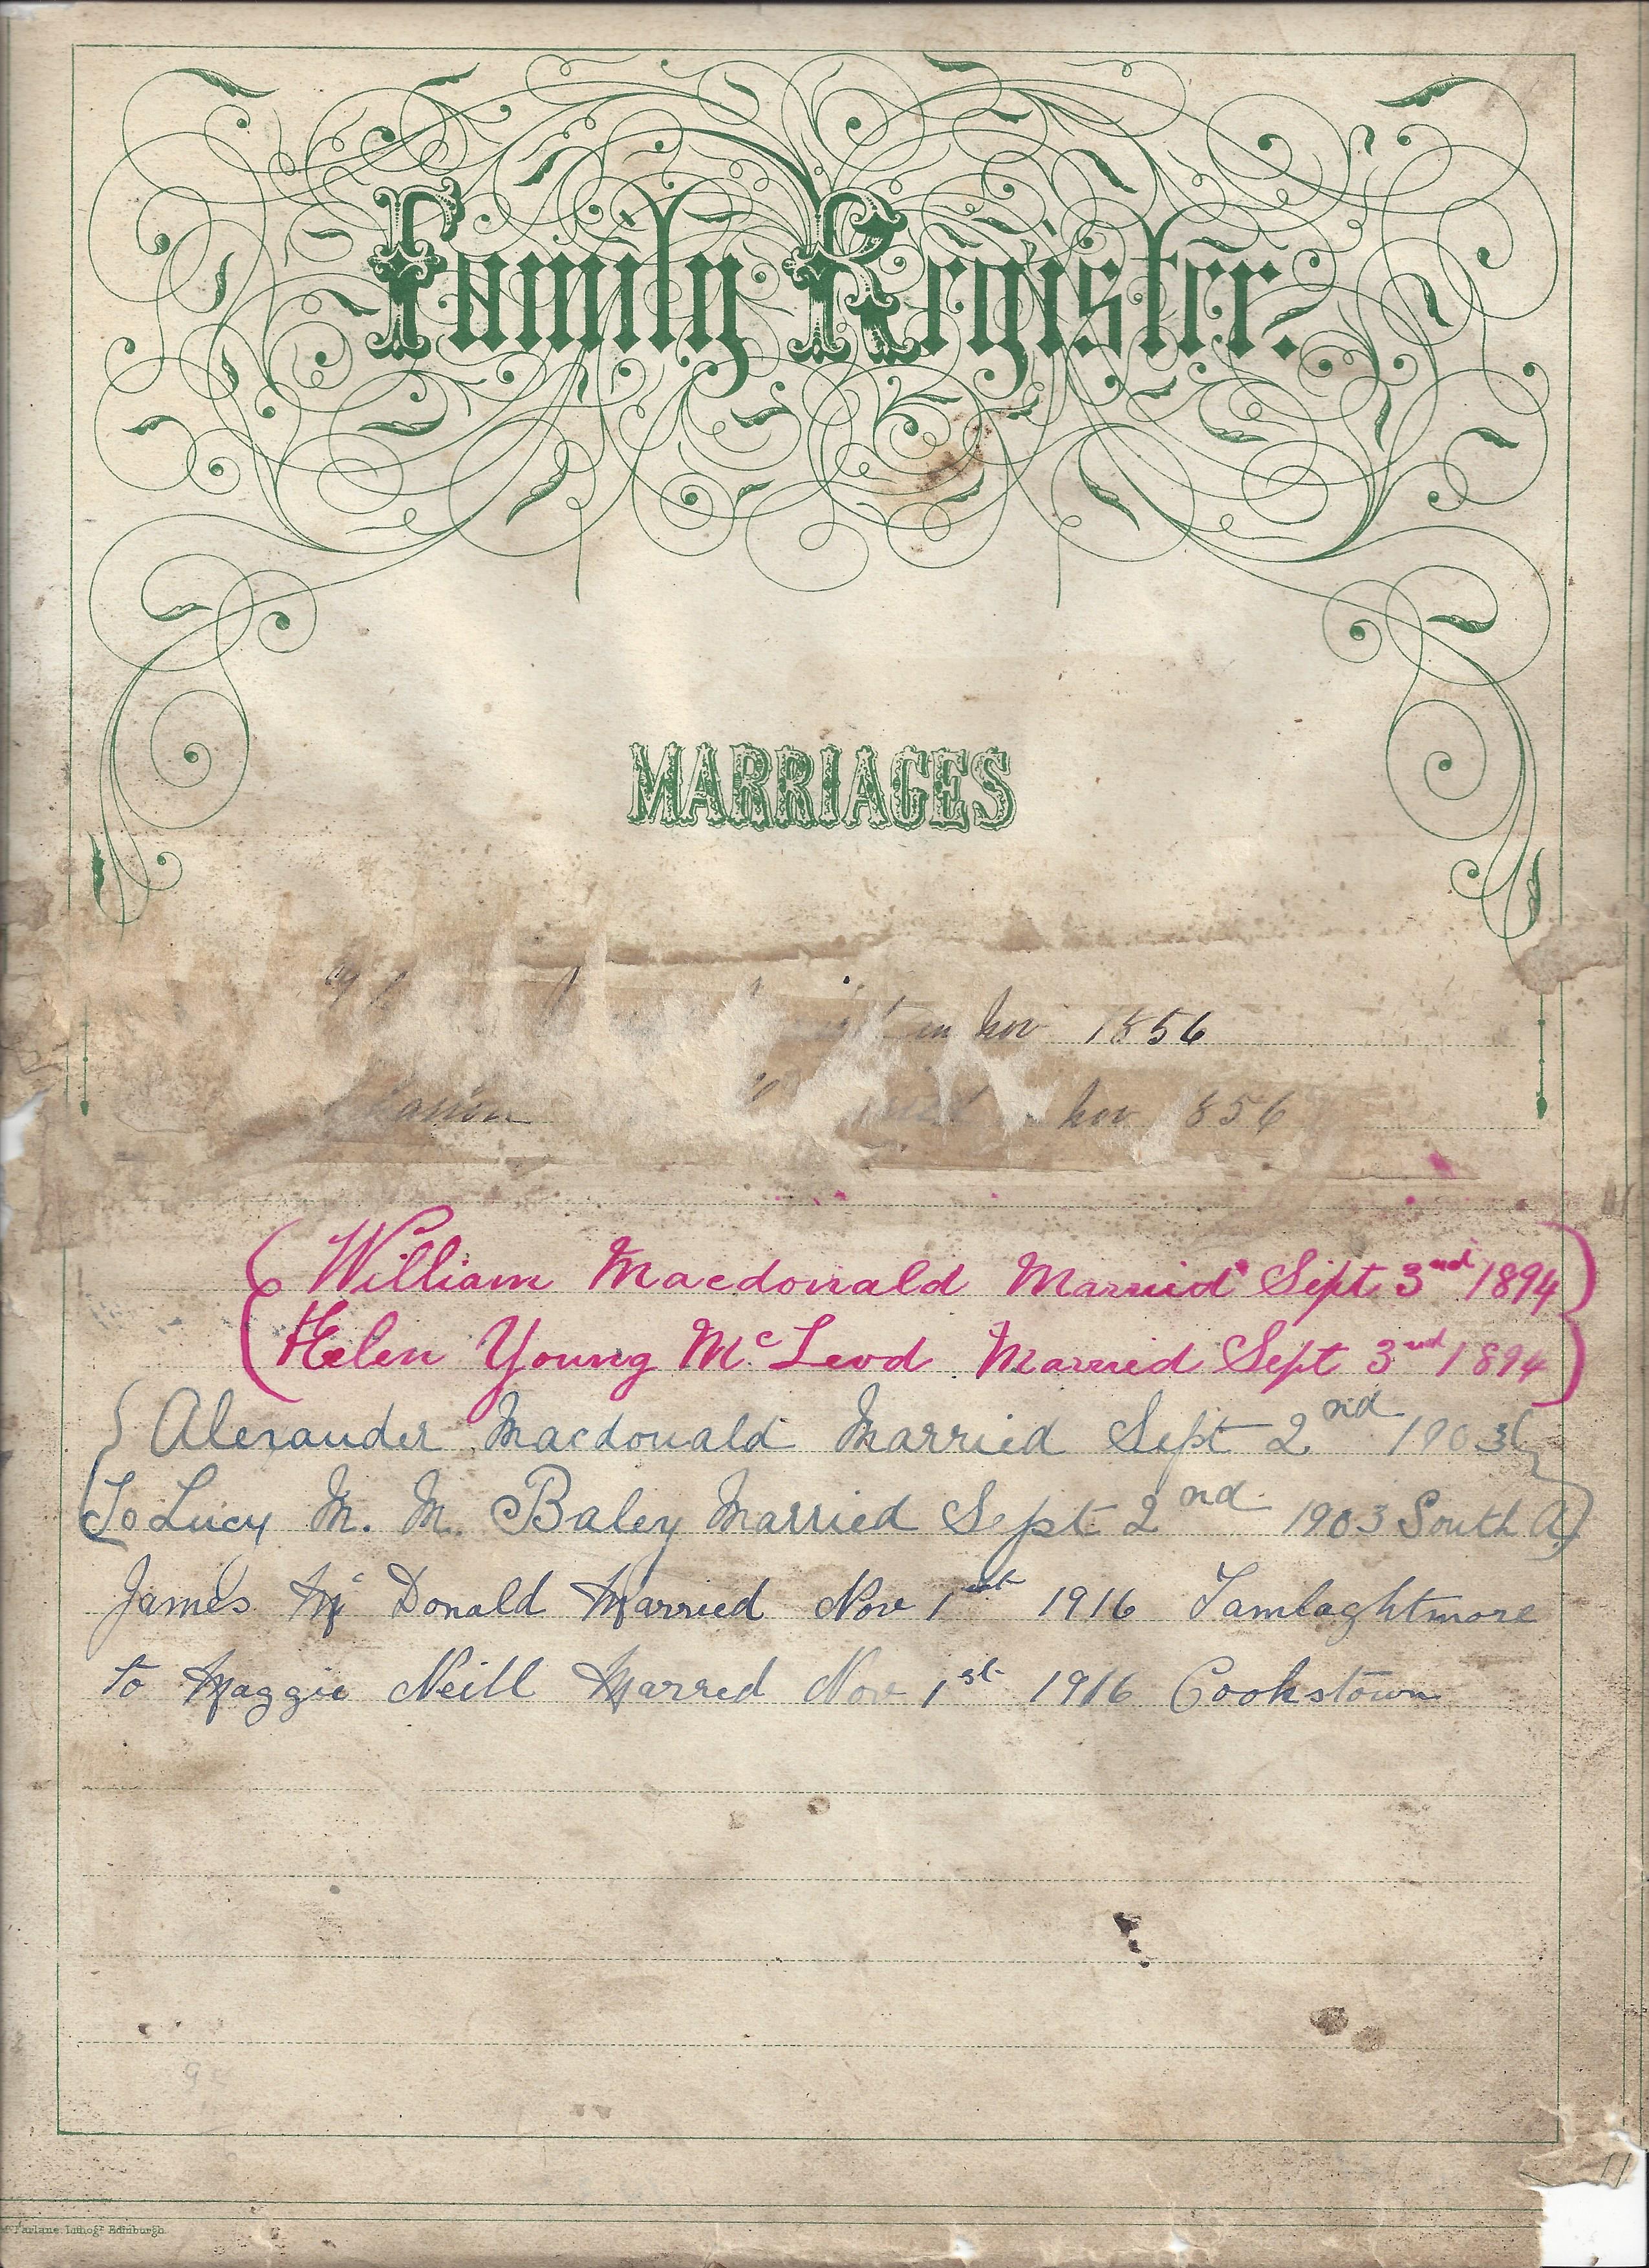 Family Register.
MARRIAGES
in Nov 1856
Nov 1856
William Macdonald Married Sept 3nd 1894
Helen Young McLeod Married Sept 3nd 1894
Alexander Macdonald Married Sept 2nd 1903
To Lucy M. M. Baley Married Sept 2nd 1903 South A
James Mc Donald Married Nov 1st 1916 Tamlaghtmore
to Maggie Neill Marred Nov 1st 1916 Cookstown
Farlane, Lithogr Edinburgh